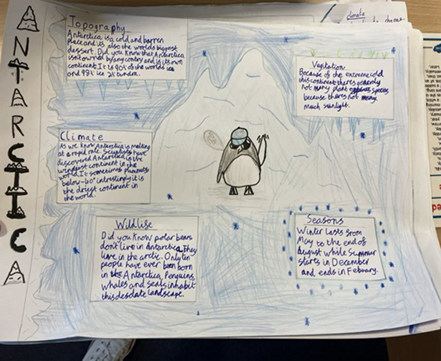 ANTARCTICA
Topography
Antarctica is a cold and barren
place and its also the worlds biggest
dessert. Did you know that Antarctica
isn't owned by any country and is it's own
continent. It is 90% of the worlds ice
and 98% is
Vegitation
Because of the extreme cold
this continent theres
not many plant species
because theres not many
much sunlight.
Climate
As we know Antarctica is melting
at a rapid rate. Scientists have
discovered Antarctica is the
windiest continent in the
world. It sometimes
below -60° interestingly it is
the driest continent in
the world.
Wildlife
Did you know polar bears
don't live in Antarctica. They
live in the arctic. Only ten
people have ever been born
in the Antarctica. Penguins
whales and seals inhabit
this desolate landscape.
Seasons
Winter lasts from
May to the end of
August while Summer
starts in December
and ends in Febuary.